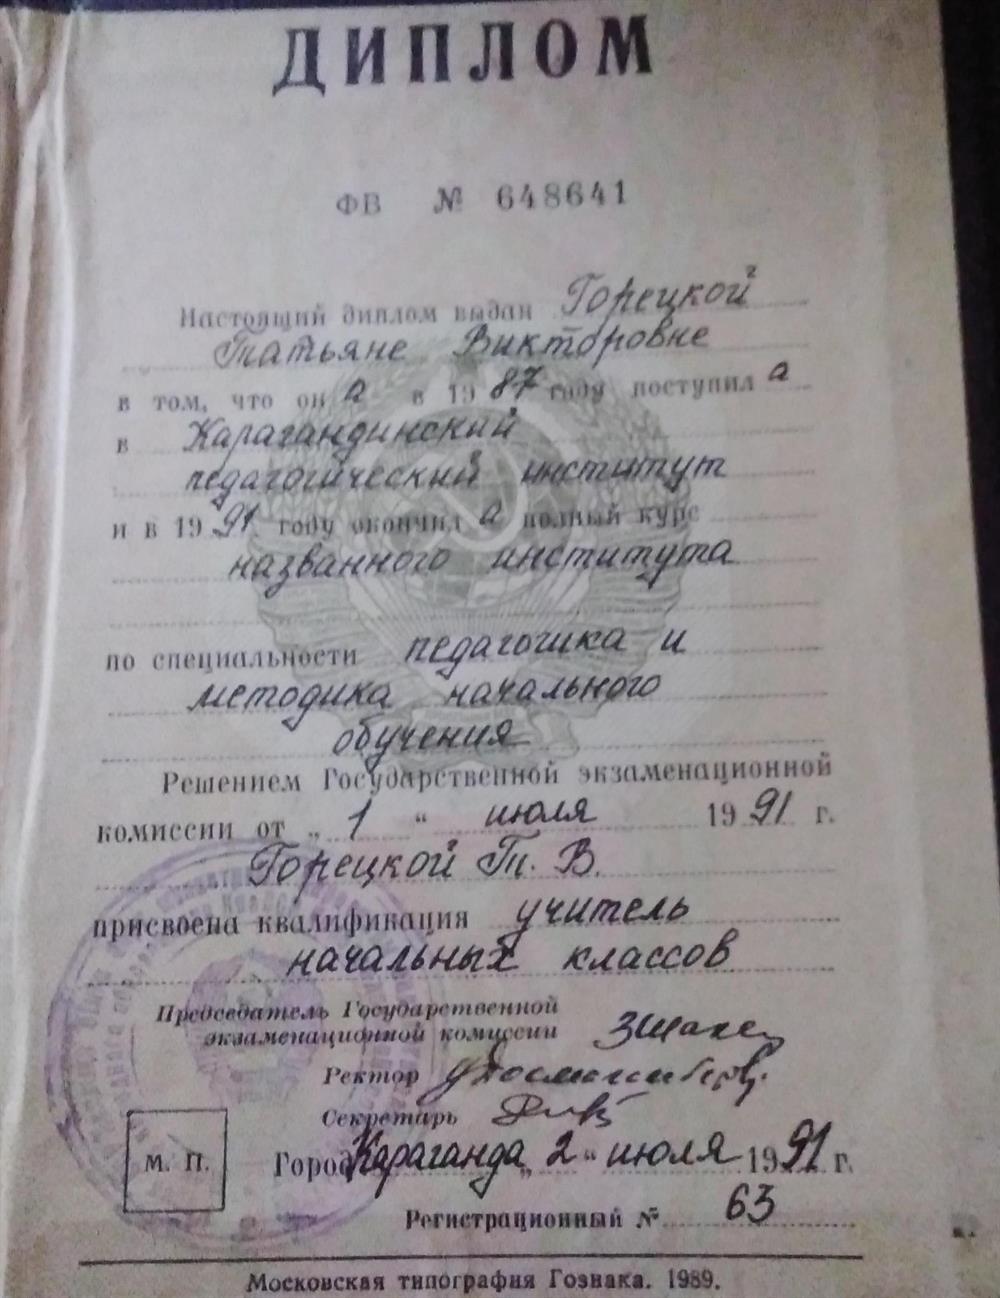 ДИПЛОМ
ФВ № 648641
Настоящий диплом выдан Горецкой
Татьяне Викторовне
в том, что он а в 1987 году поступил а
в Карагандинский
педагогический институт
и в 1991 году окончил а полный курс
названного института
по специальности педагогика и
методика начального
обучения
Решением Государственной экзаменационной
комиссии от „ 1 “ июля 1991 г.
Горецкой Т. В.
присвоена квалификация учитель
начальных классов
Председатель Государственной
экзаменационной комиссии
Ректор
Секретарь
М. П.
Город Караганда „ 2 “ июля 1991 г.
Регистрационный № 63
Московская типография Гознака. 1989.